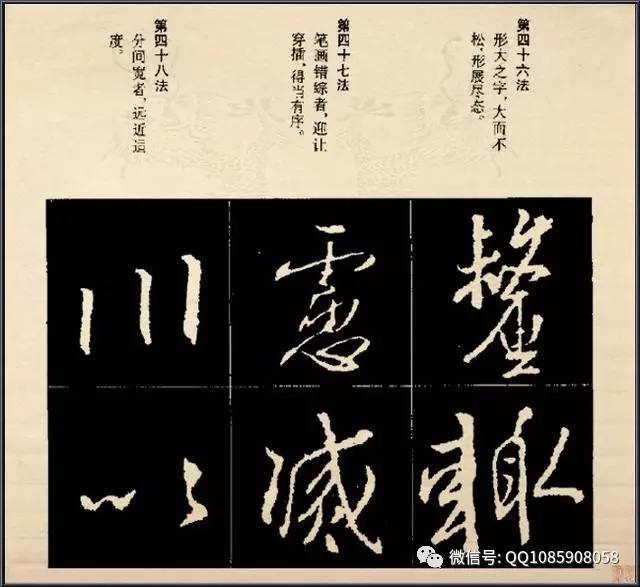 第四十六法
形大之字，大而不
松，形展尽态。
第四十七法
笔画错综者，迎让
穿插，得当有序。
第四十八法
分间宽者，远近适
度。
川
以
灵
减
微信号: QQ1085908058